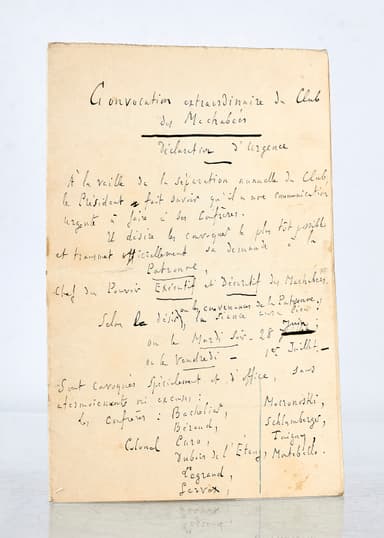 Convocation extraordinaire du Club
des Machabées
Déclaration d'Urgence
À la veille de la séparation annuelle du Club,
le Président fait savoir qu'il a une communication
urgente à faire à ses Confrères.
Il désire les convoquer le plus tôt possible
et transmet officiellement sa demande à la
Patronne,
Chef du Pouvoir Exécutif et Décrétif des Machabées.
Selon le désir, ou les convenances de la Patronne,
la Séance aura lieu:
ou le Mardi soir 28 Juin,
ou le Vendredi - 1er Juillet.
Sont convoqués spécialement et d'office, sans
atermoiements ni excuses:
les Confrères: Bachelier, Macronoski,
Béraud, Schlumberger,
Colonel Caro, Turigny,
Dubois de l'Étang, Montebello.
Legrand,
Servois,